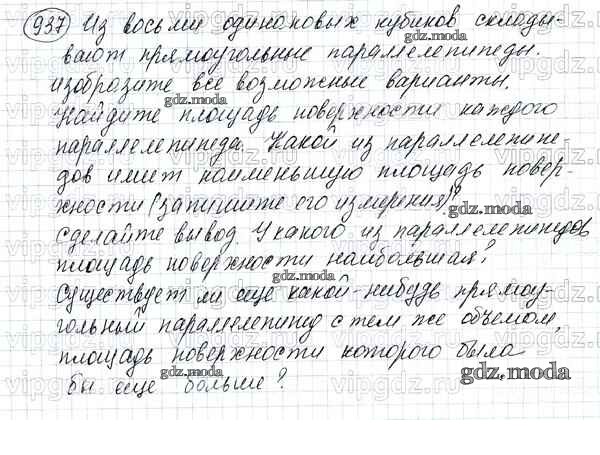 937 Из восьми одинаковых кубиков склады-
вают прямоугольные параллелепипеды.
Изобразите все возможные варианты.
Найдите площадь поверхности каждого
параллелепипеда. Какой из параллелепипе-
дов имеет наименьшую площадь повер-
хности (запишите его измерения)?
Сделайте вывод. У какого из параллелепипедов
площадь поверхности наибольшая?
Существует ли еще какой-нибудь прямоу-
гольный параллелепипед с тем же объемом,
площадь поверхности которого была
бы еще больше?
gdz.moda
gdz.moda
gdz.moda
gdz.moda
gdz.moda
gdz.moda
gdz.moda